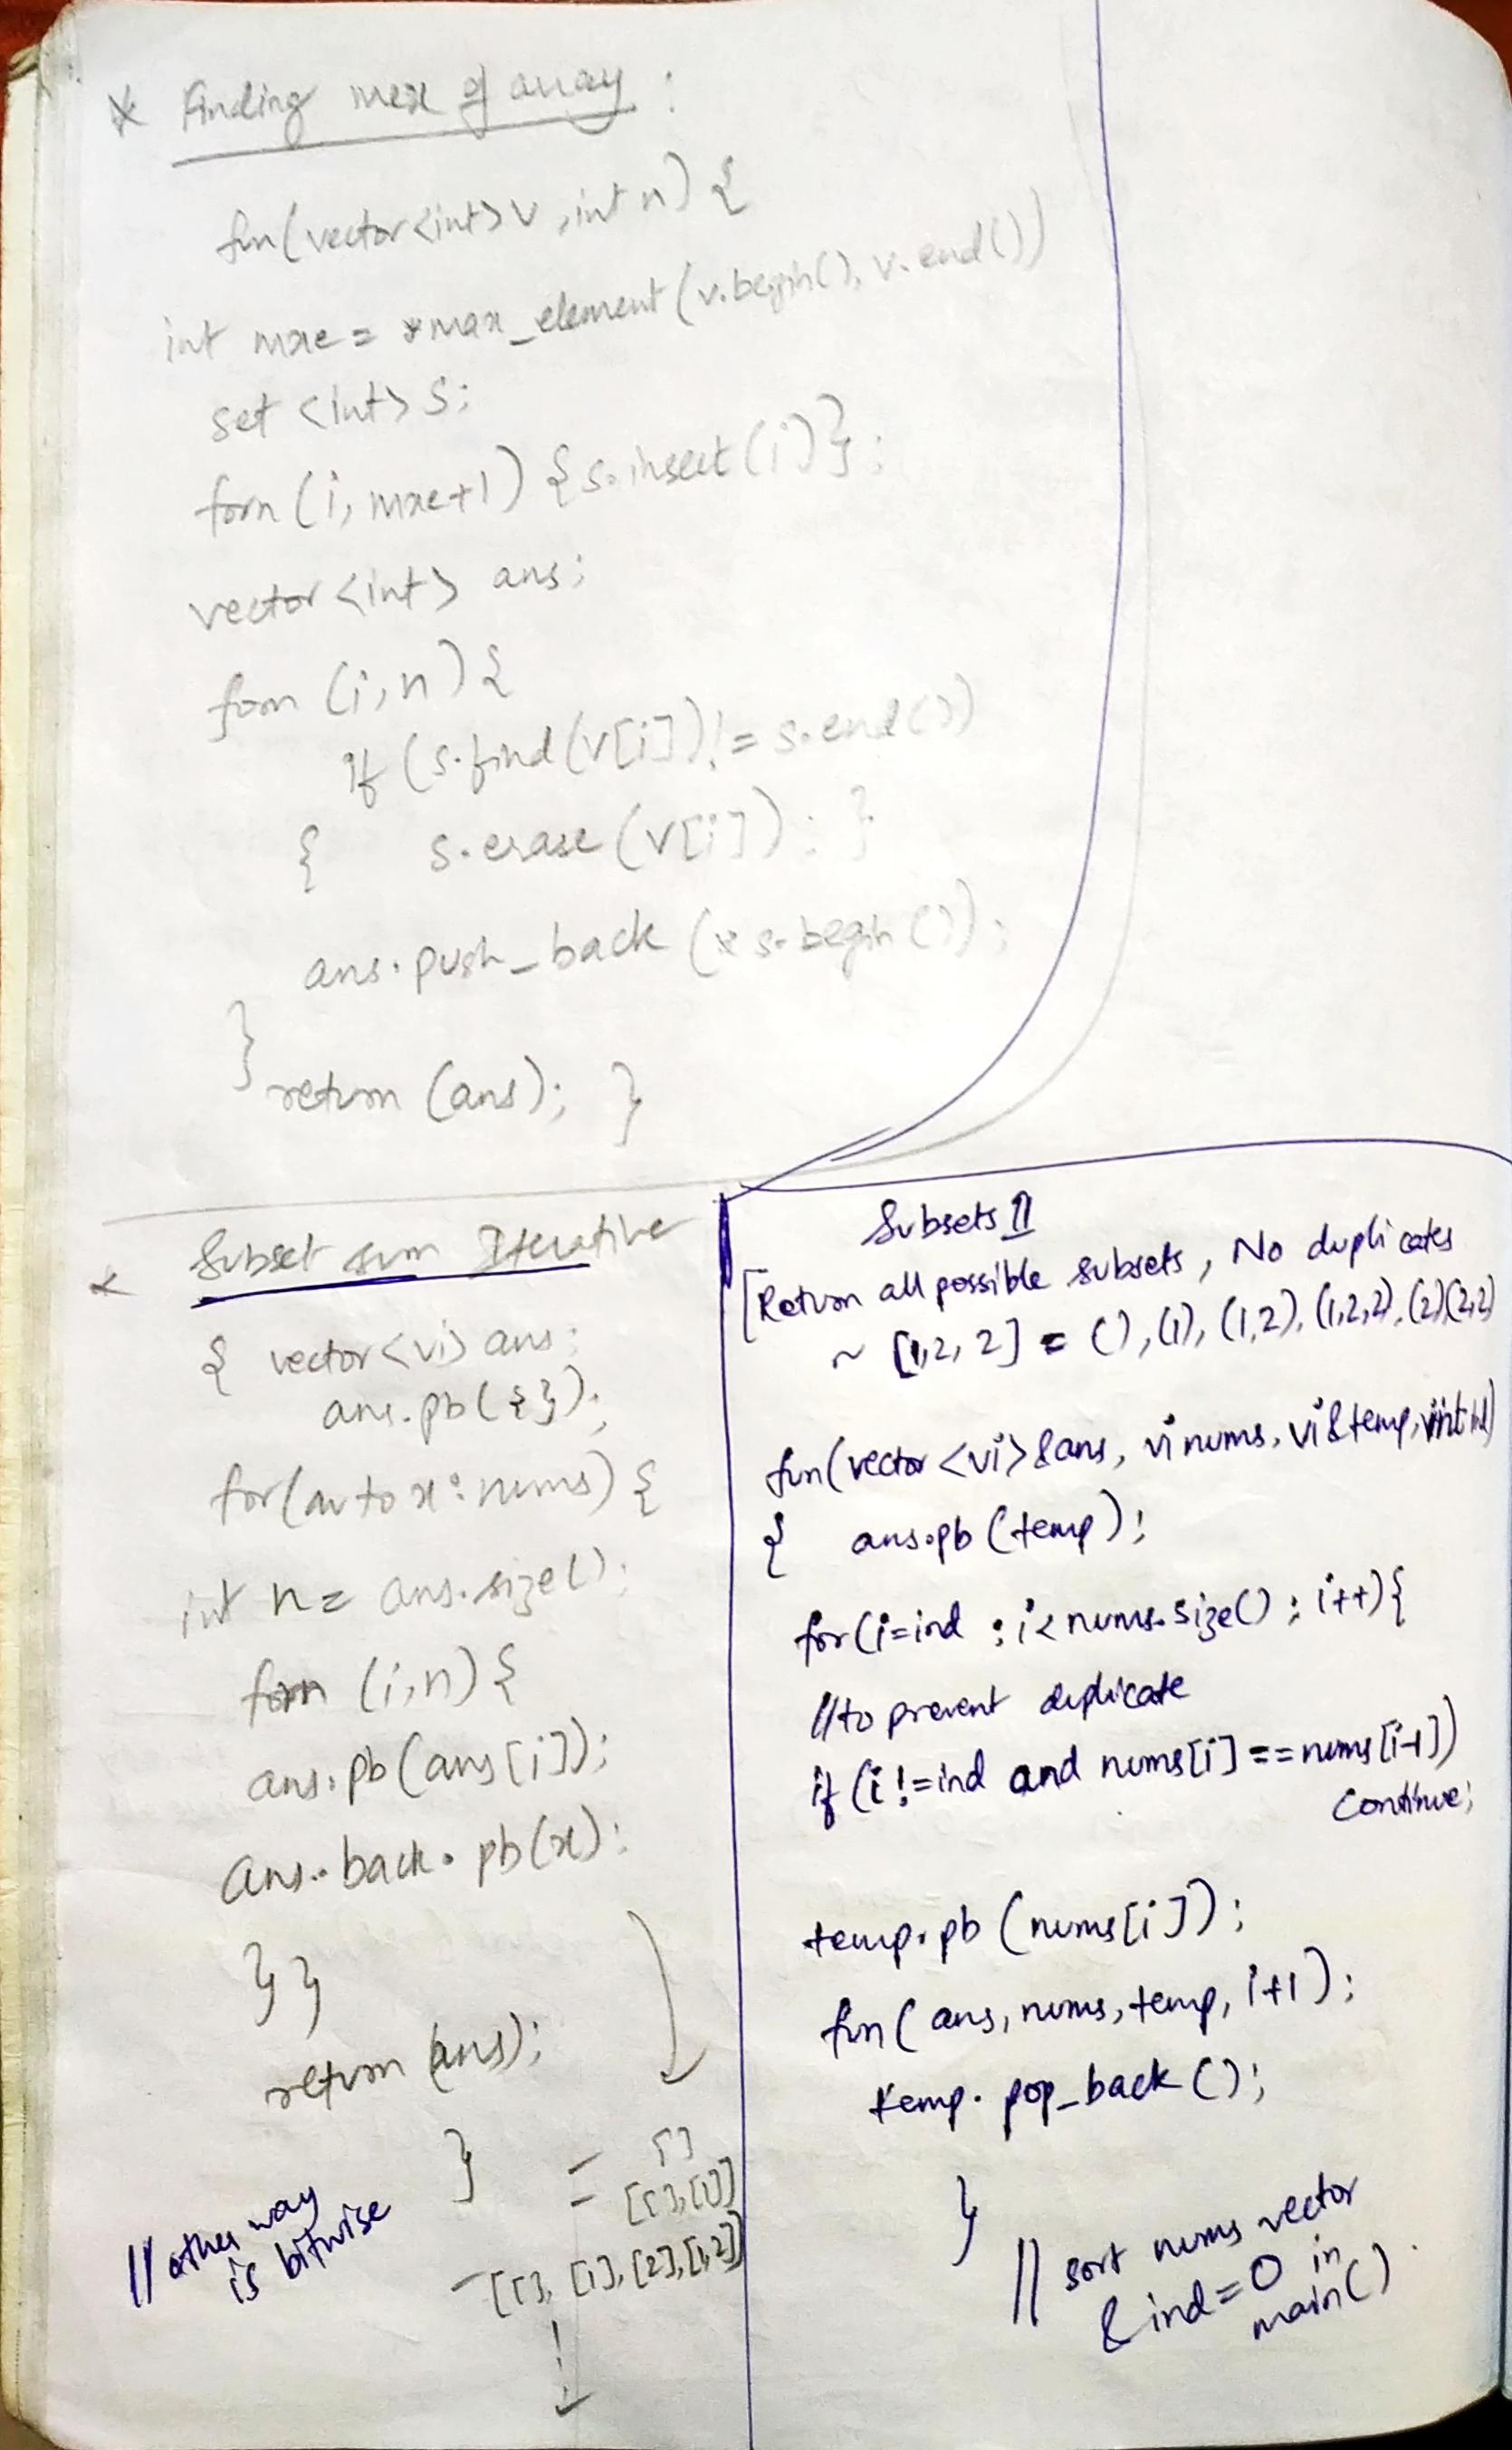 * Finding mex of array :
fun(vector<int>v, int n) {
int mxe = *max_element(v.begin(), v.end())
set <int> s;
forn (i, mxe+1) {s.insert(i)};
vector <int> ans;
forn (i,n) {
if (s.find(v[i]) != s.end())
{ s.erase(v[i]); }
ans.push_back (*s.begin());
}
return (ans); }
Subset sum Iterative
{ vector<vi> ans;
ans.pb({});
for(auto x : nums) {
int n = ans.size();
forn (i,n) {
ans.pb(ans[i]);
ans.back.pb(x);
}}
return (ans);
}
= []
= [[],[1]]
- [[], [1], [2], [1,2]]
// other way
is bitwise
Subsets II
[Return all possible subsets, No duplicates
~ [1,2,2] = (), (1), (1,2), (1,2,2), (2)(2,2)
fun(vector <vi> &ans, vi nums, vi &temp, int
{ ans.pb (temp);
for(i=ind ; i< nums.size() ; i++){
//to prevent duplicate
if (i != ind and nums[i] == nums[i-1])
continue;
temp.pb (nums[i]);
fun( ans, nums, temp, i+1);
temp. pop_back ();
}
// sort nums vector
& ind = 0 in
main()